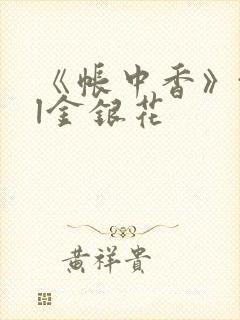 《帐中香》
|金银花
黄祥贵